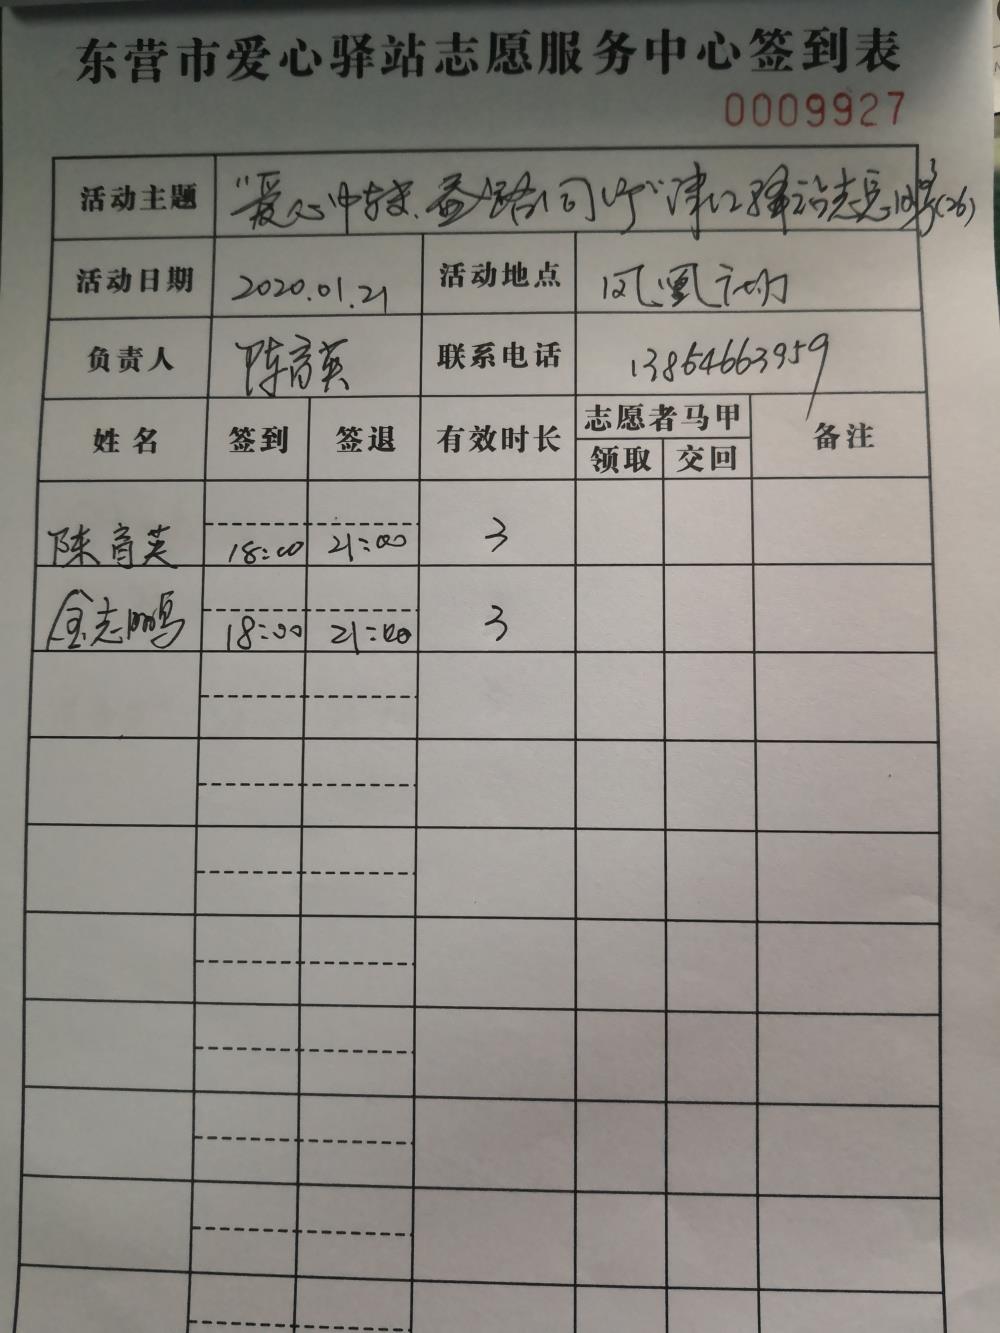 东营市爱心驿站志愿服务中心签到表
0009927
活动主题 "爱心中转, 益路同行" 驿站志愿服务(26)
活动日期 2020.01.21 活动地点 凤凰
负责人 陈育英 联系电话 13864663959
姓名 签到 签退 有效时长 志愿者马甲 备注
领取 交回
陈育英 18:00 21:00 3
金志鹏 18:00 21:00 3